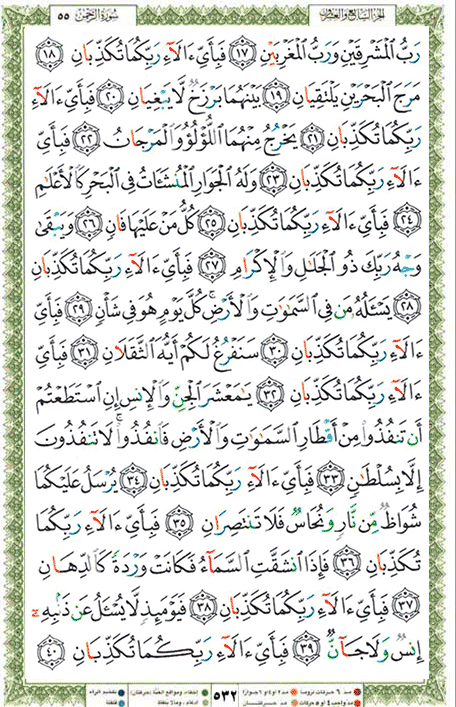 سُورَةُ الرَّحْمٰن ٥٥ الجزء السابع والعشرون
رَبُّ الْمَشْرِقَيْنِ وَرَبُّ الْمَغْرِبَيْنِ ١٧ فَبِأَيِّ ءَالَآءِ رَبِّكُمَا تُكَذِّبَانِ ١٨
مَرَجَ الْبَحْرَيْنِ يَلْتَقِيَانِ ١٩ بَيْنَهُمَا بَرْزَخٌ لَّا يَبْغِيَانِ ٢٠ فَبِأَيِّ ءَالَآءِ
رَبِّكُمَا تُكَذِّبَانِ ٢١ يَخْرُجُ مِنْهُمَا اللُّؤْلُؤُ وَالْمَرْجَانُ ٢٢ فَبِأَيِّ
ءَالَآءِ رَبِّكُمَا تُكَذِّبَانِ ٢٣ وَلَهُ الْجَوَارِ الْمُنشَـَٔاتُ فِي الْبَحْرِ كَالْأَعْلَٰمِ
٢٤ فَبِأَيِّ ءَالَآءِ رَبِّكُمَا تُكَذِّبَانِ ٢٥ كُلُّ مَنْ عَلَيْهَا فَانٍ ٢٦ وَيَبْقَىٰ
وَجْهُ رَبِّكَ ذُو الْجَلَٰلِ وَالْإِكْرَامِ ٢٧ فَبِأَيِّ ءَالَآءِ رَبِّكُمَا تُكَذِّبَانِ
٢٨ يَسْـَٔلُهُ مَن فِي السَّمَٰوَٰتِ وَالْأَرْضِ كُلَّ يَوْمٍ هُوَ فِي شَأْنٍ ٢٩ فَبِأَيِّ
ءَالَآءِ رَبِّكُمَا تُكَذِّبَانِ ٣٠ سَنَفْرُغُ لَكُمْ أَيُّهَ الثَّقَلَانِ ٣١ فَبِأَيِّ
ءَالَآءِ رَبِّكُمَا تُكَذِّبَانِ ٣٢ يَٰمَعْشَرَ الْجِنِّ وَالْإِنسِ إِنِ اسْتَطَعْتُمْ
أَن تَنفُذُوا مِنْ أَقْطَارِ السَّمَٰوَٰتِ وَالْأَرْضِ فَانفُذُوا لَا تَنفُذُونَ
إِلَّا بِسُلْطَٰنٍ ٣٣ فَبِأَيِّ ءَالَآءِ رَبِّكُمَا تُكَذِّبَانِ ٣٤ يُرْسَلُ عَلَيْكُمَا
شُوَاظٌ مِّن نَّارٍ وَنُحَاسٌ فَلَا تَنتَصِرَانِ ٣٥ فَبِأَيِّ ءَالَآءِ رَبِّكُمَا
تُكَذِّبَانِ ٣٦ فَإِذَا انشَقَّتِ السَّمَآءُ فَكَانَتْ وَرْدَةً كَالدِّهَانِ
٣٧ فَبِأَيِّ ءَالَآءِ رَبِّكُمَا تُكَذِّبَانِ ٣٨ فَيَوْمَئِذٍ لَّا يُسْـَٔلُ عَن ذَنۢبِهِۦٓ
إِنسٌ وَلَا جَآنٌّ ٣٩ فَبِأَيِّ ءَالَآءِ رَبِّكُمَا تُكَذِّبَانِ ٤٠
٥٣٢